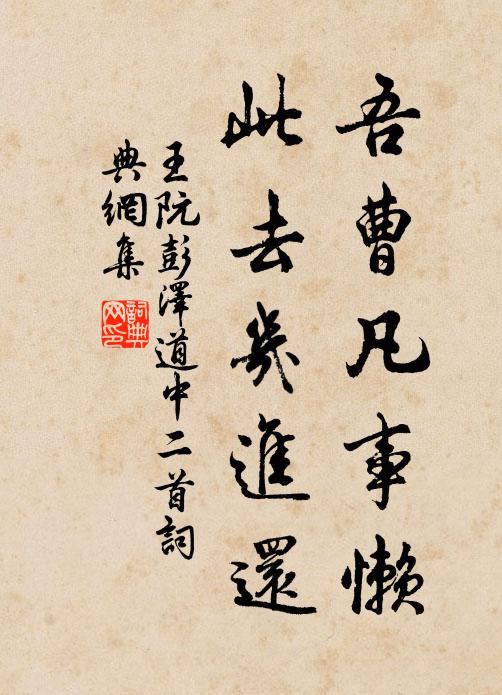 吾曹凡事懒
此去幾進還
王阮彭澤道中二首詞
典網集
詞典网印